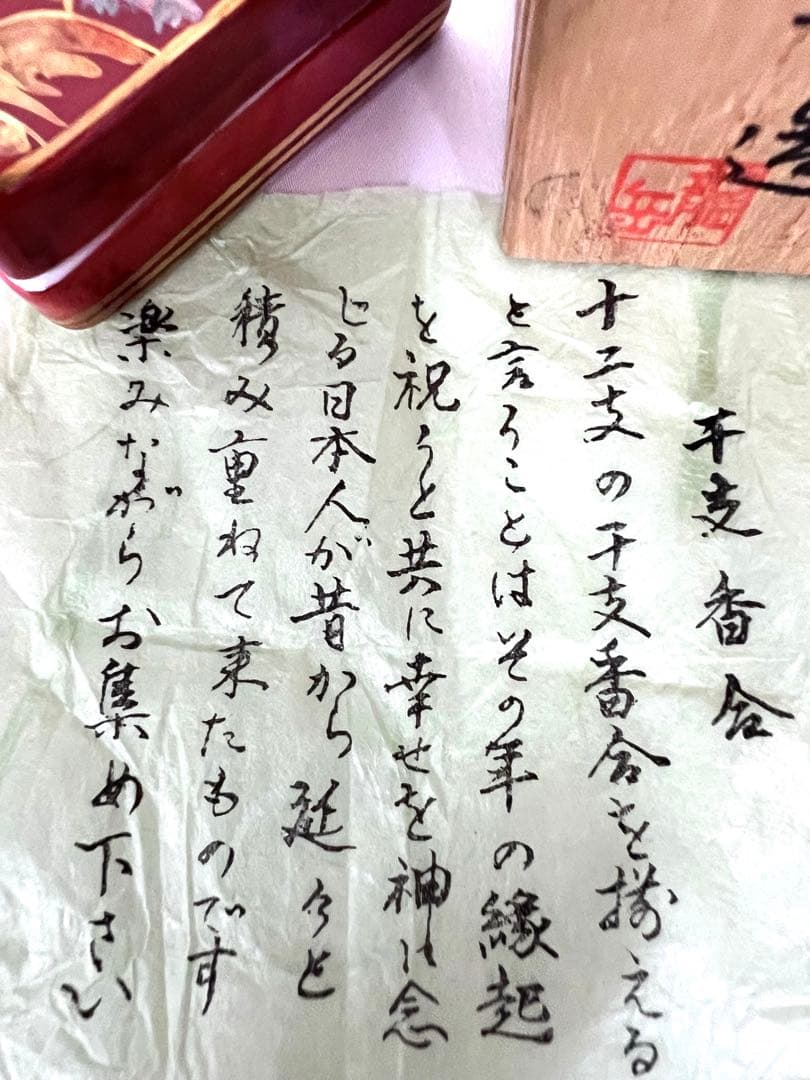 干支香合
十二支の干支香合を揃える
と言うことはその年の縁起
を祝うと共に幸せを神に念
じる日本人が昔から延々と
積み重ねて来たものです
楽みながらお集め下さい
造